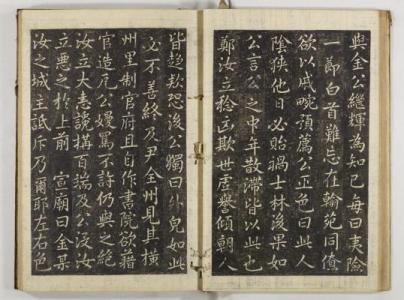 與金公繼輝為知己每曰夷險
一節白首難忘在翰苑同僚
欲以戚畹預薦公正色曰此人
陰狹他日必貽禍士林後果如
公言公之中年散滯皆以此也
鄭汝立稔凶欺世虛譽傾朝人
皆趨歎恐後公獨曰外皃如此
必不善終及尹全州見其橫
州里制官府且自作書院欲藉
官造瓦公嫚罵不許仍與之絶
汝立大恚讒搆百端及公汶汝
立惡之於上前 宣廟曰金某
汝之城主詆斥乃爾耶左右色